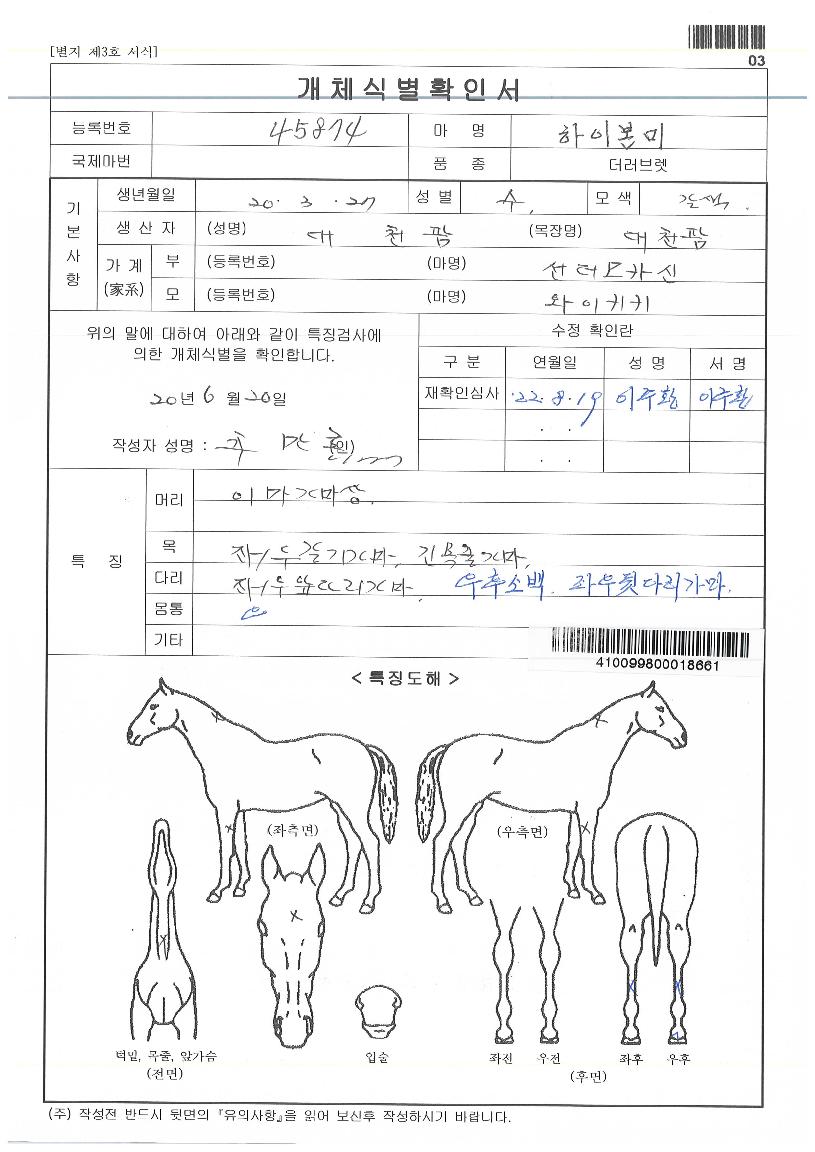 [별지 제3호 서식]
03
개체식별확인서
등록번호 45814 마 명 하이봄미
국제마번 품 종 더러브렛
기본사항
생년월일 20. 3. 27 성별 수. 모색 갈색.
생산자 (성명) 대천팜 (목장명) 대천팜
가계(家系) 부 (등록번호) (마명) 선더모카신
모 (등록번호) (마명) 와이키키
위의 말에 대하여 아래와 같이 특징검사에
의한 개체식별을 확인합니다.
20년 6월 20일
작성자 성명 : (인)
수정 확인란
구분 연월일 성명 서명
재확인심사 '22. 8. 19 이주환 이주환
. .
. .
특 징
머리 이마가마상.
목 좌/우갈기가마, 긴목줄가마.
다리 좌/우앞다리가마. 우후소백. 좌우뒷다리가마.
몸통
기타
410099800018661
< 특징도해 >
(좌측면) (우측면)
턱밑, 목줄, 앞가슴
(전면)
입술
좌전 우전 좌후 우후
(후면)
(주) 작성전 반드시 뒷면의 『유의사항』을 읽어 보신후 작성하시기 바랍니다.